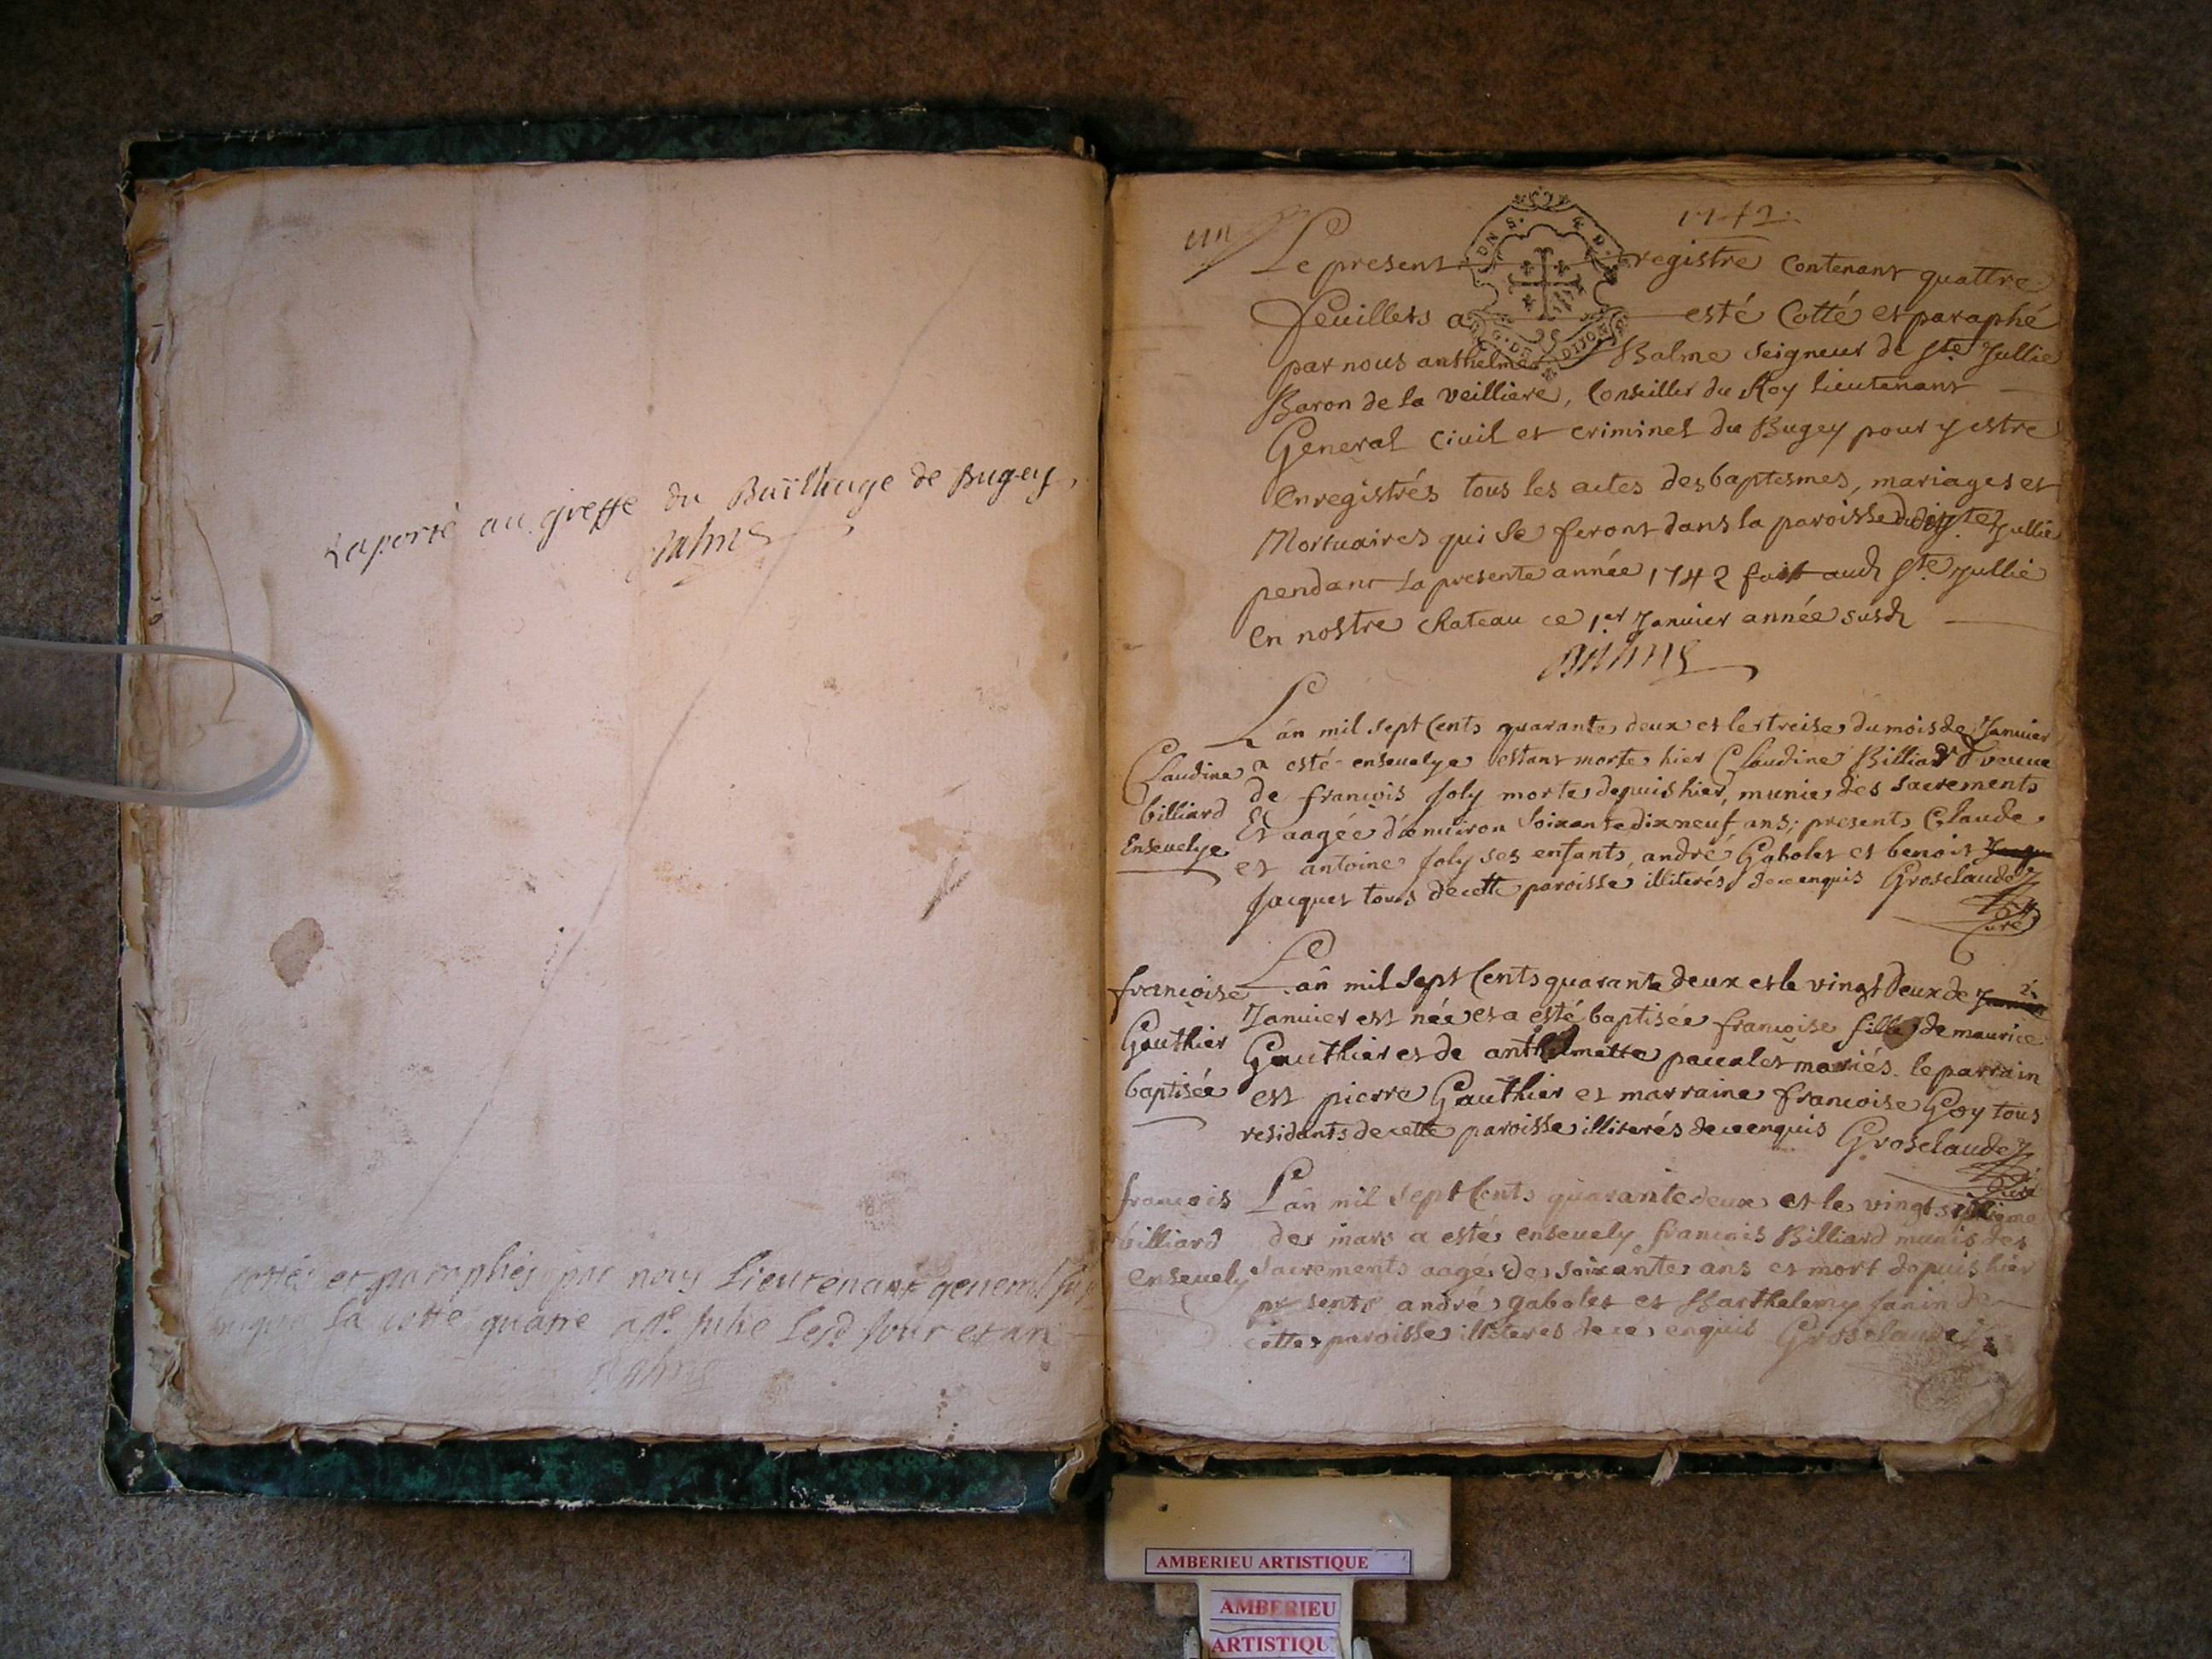 Raporté au greffe du Bailliage de Bugey,
Balme
cottés et paraphés par nous Lieutenant general
la cotte quatre a Ste Julie Lesd. Jour et an
Balme
un
1742.
Le present registre Contenant quattre
feuillets a esté Cotté et paraphé
par nous anthelme Balme Seigneur de Ste Jullie
Baron de la veilliere, Conseiller du Roy lieutenant
General Civil et criminel du Bugey pour y estre
Enregistrés tous les actes des baptesmes, mariages et
Mortuaires qui se feront dans la paroisse dudit Ste Jullie
pendant la presente année 1742 fait aud Ste Jullie
en nostre chateau ce 1er Janvier année susd
Balme
L'an mil sept Cents quarante deux et le treise du mois de Janvier
Claudine a esté ensevelye estant morte hier Claudine Billiard veuve
de françois Joly morte depuis hier, munie des sacrements
billiard Et aagée d'environ soixante dix neuf ans; presents Claude
Ensevelye et antoine Joly ses enfants, andré Gabolet et benoit
Jacquet tous de cette paroisse illiterés de ce enquis Grosclaude
Curé
françoise L'an mil sept Cents quarante deux et le vingt deux de
Janvier est née et a esté baptisée françoise fille de maurice
Gauthier Gauthier et de anthelmette pacalet mariés. le parrain
baptisée est pierre Gauthier et marraine françoise Goy tous
residants de cette paroisse illiterés de ce enquis Grosclaude
Curé
francois L'an mil sept Cents quarante deux et le vingt
billiard de mars a esté ensevely francois Billiard munis des
ensevely sacrements aagé de soixante ans et mort depuis hier
presents andré gabolet et Barthelemy Janin de
cette paroisse illiteres de ce enquis Grosclaude
G. DE DIJON
AMBERIEU ARTISTIQUE
AMBERIEU
ARTISTIQU